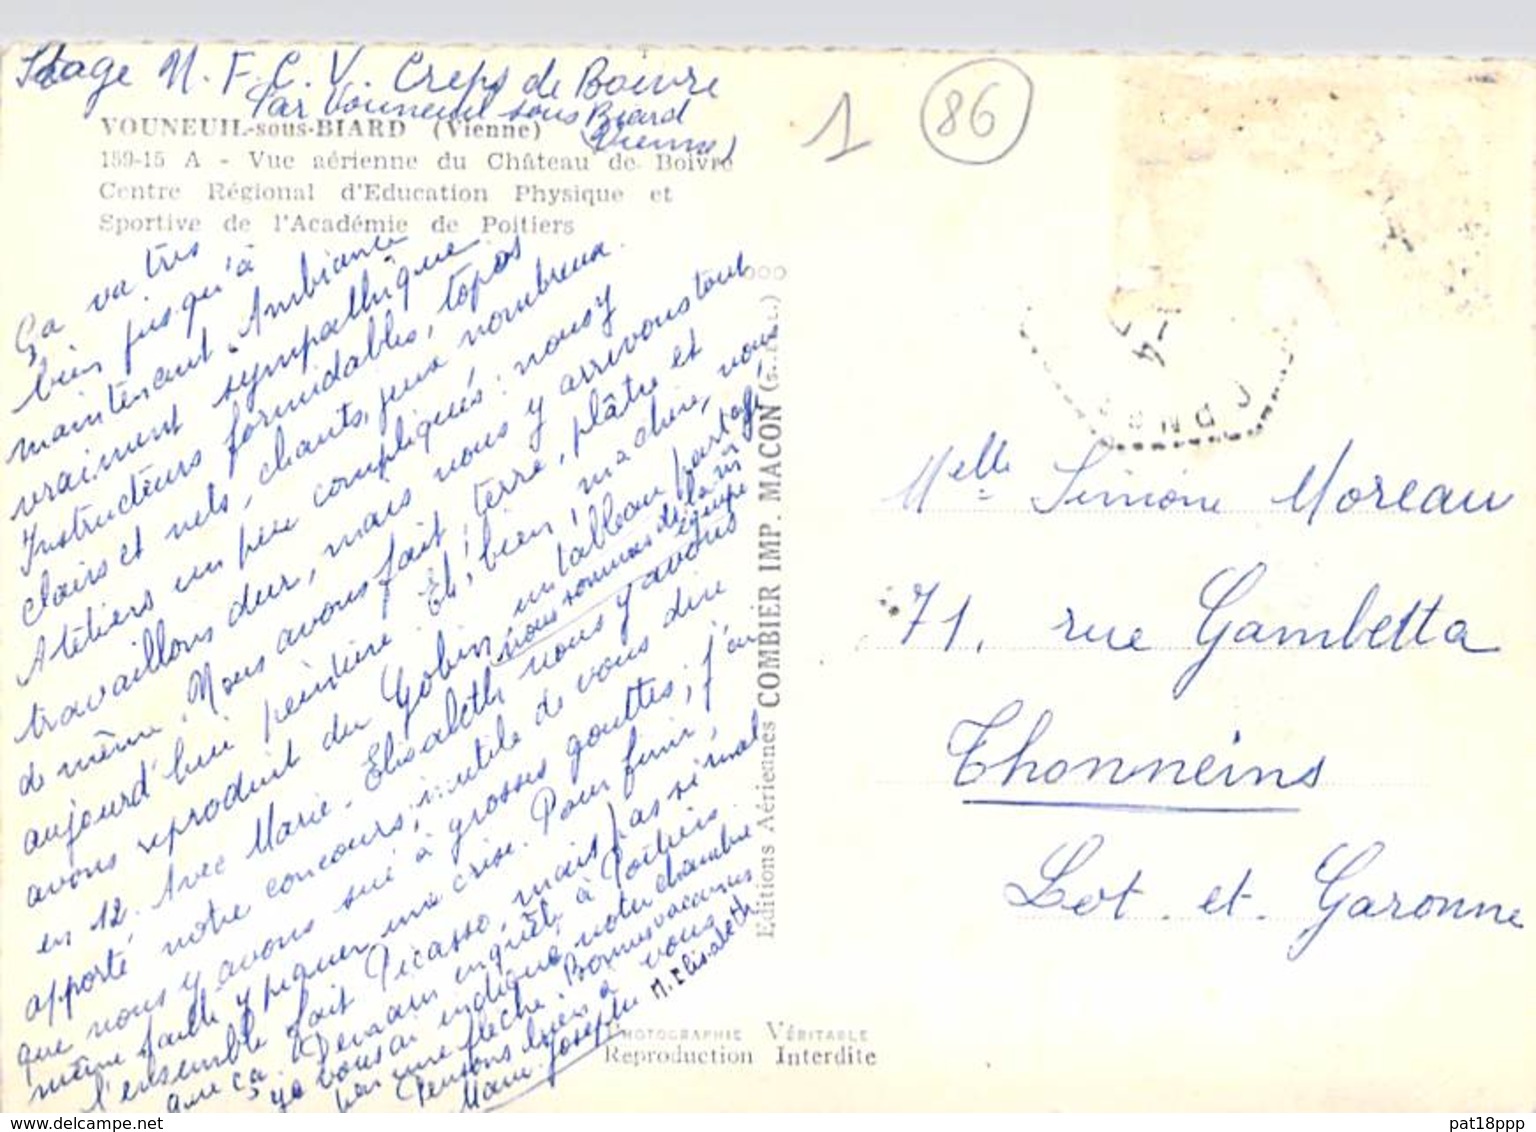 Stage U.F.C.V. Creps de Boivre
Par Vouneuil sous Biard
(Vienne)
VOUNEUIL-sous-BIARD (Vienne)
159-15 A - Vue aérienne du Château de Boivre
Centre Régional d'Education Physique et
Sportive de l'Académie de Poitiers
1
86
Ça va très
bien jusqu'à
maintenant. Ambiance
vraiment sympathique
Instructeurs formidables, topos
clairs et nets, chants, jeux nombreux.
Ateliers un peu compliqués : nous y
travaillons dur, mais nous y arrivons tout
de même. Nous avons fait terre, plâtre et
aujourd'hui peinture. Eh, bien! ma chère, nous
avons reproduit du Gobin un tableau partagé
en 12. Avec Marie-Elisabeth nous y avons
nous sommes dans la m équipe
apporté notre concours, inutile de vous dire
que nous y avons sué à grosses gouttes; j'ai
même failli y piquer une crise. Pour finir,
l'ensemble fait Picasso, mais pas si mal
que ça. Demain enquête à Poitiers.
Je vous ai indiqué notre chambre
par une flèche. Bonnes vacances
Pensons bien à vous
Marie-Josèphe M. Elisabeth
Editions Aériennes COMBIER IMP. MACON (S.-et-L.)
PHOTOGRAPHIE VÉRITABLE
Reproduction Interdite
Melle Simone Moreau
71, rue Gambetta
Thonneins
Lot et Garonne
www.delcampe.net
pat18ppp